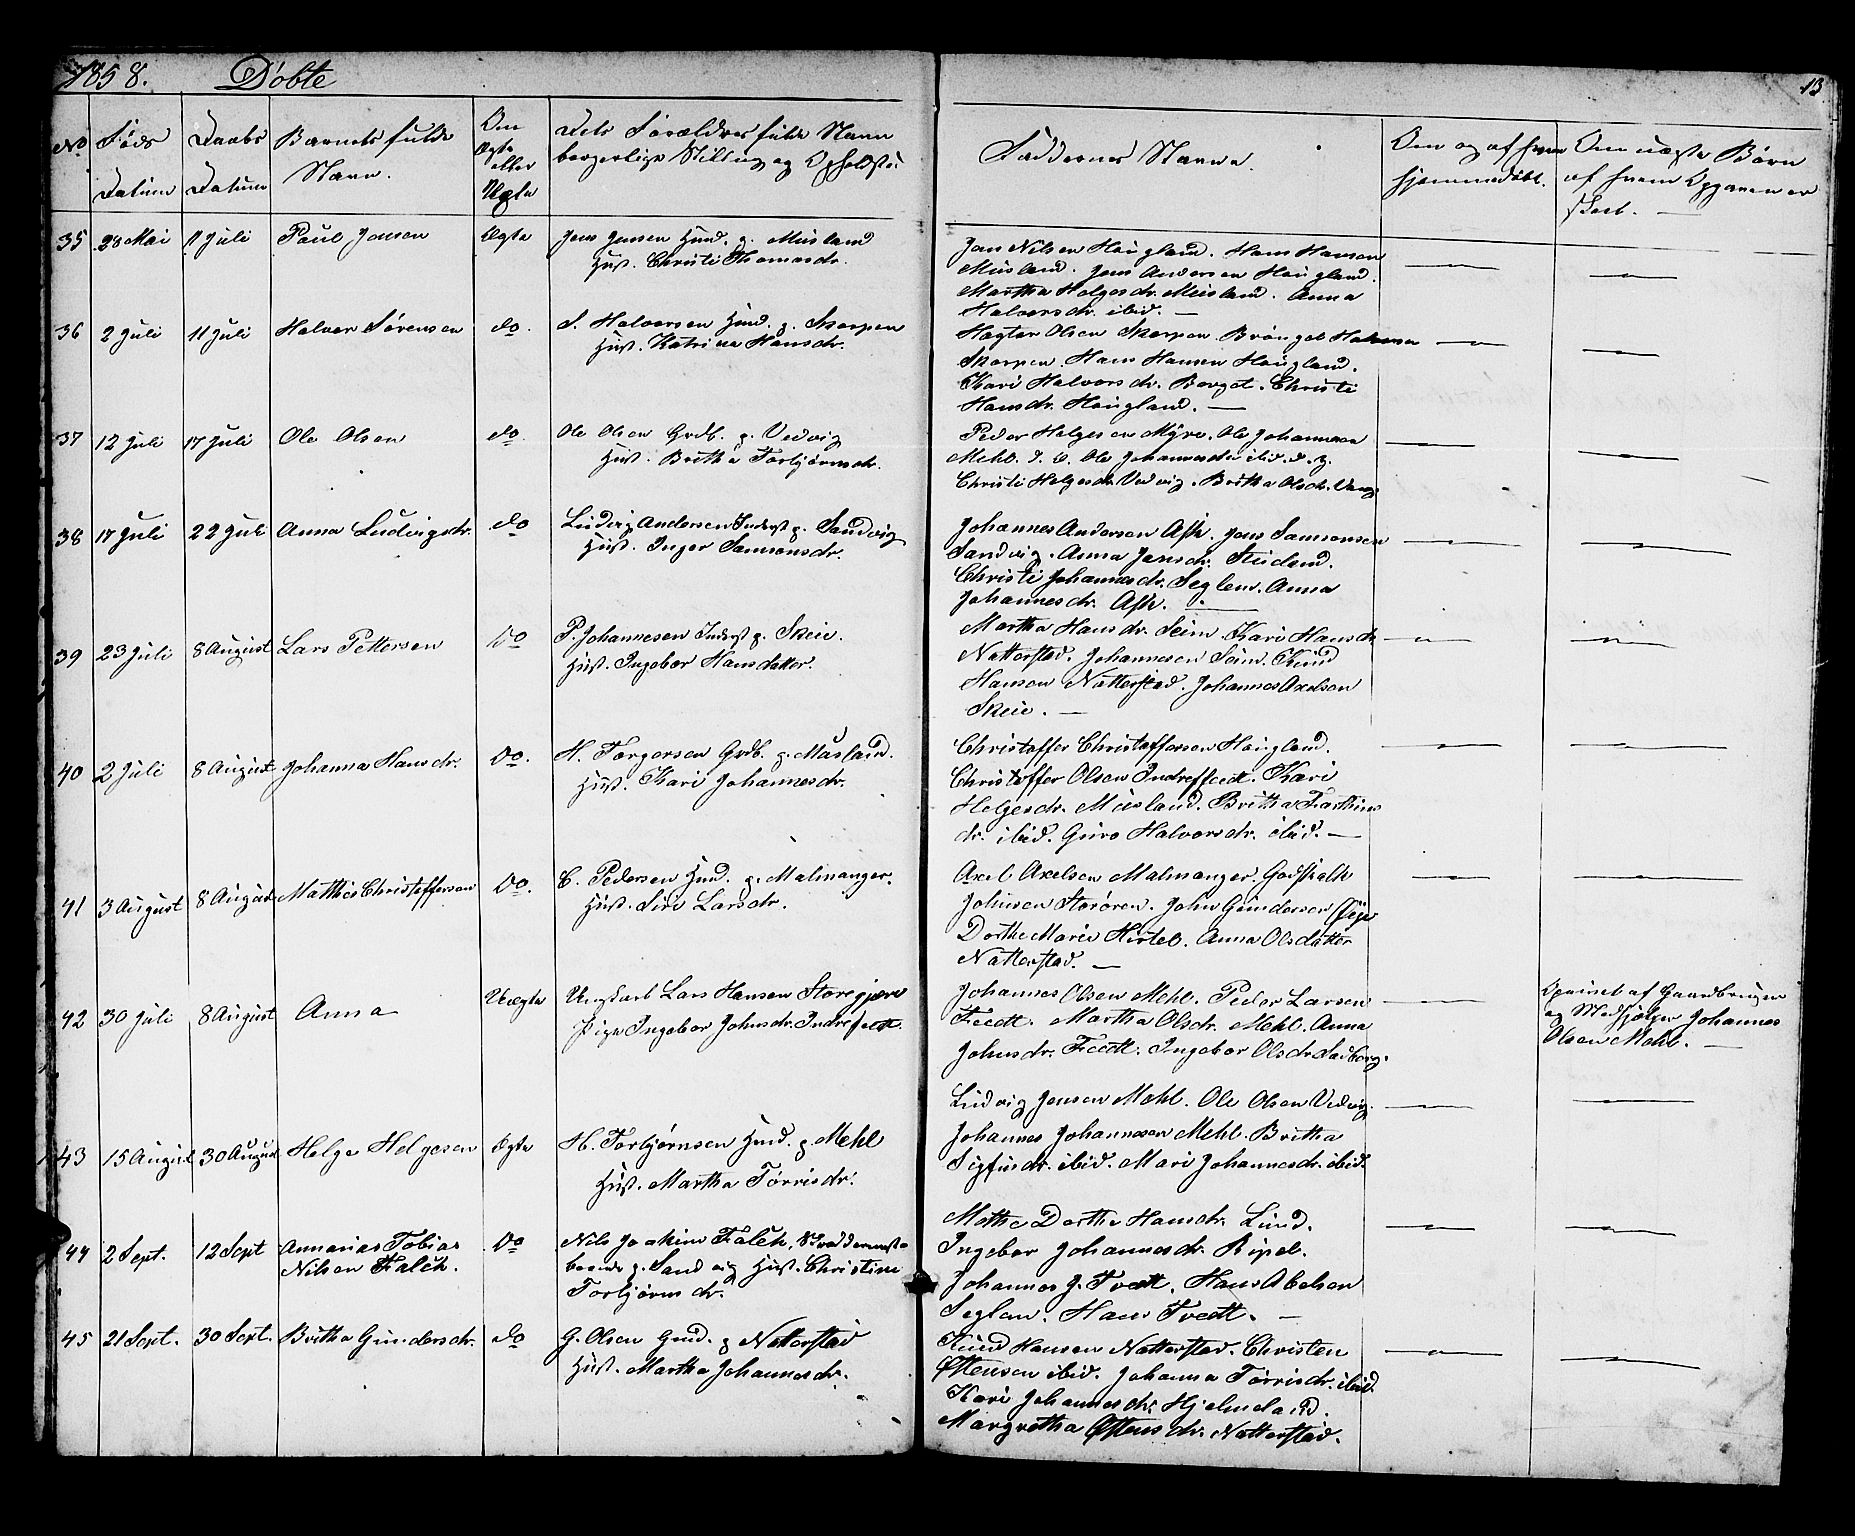 1858. Døbte
13
No
Føds Datum
Daabs Datum
Barnets fulde Navn.
Om Ægte eller Uægte
Dets Forældres fulde Navn borgerlige Stilling og Opholdsted
Faddernes Navne.
Om og af hvem hjemmedøbt.
Om uægte Børn af hvem Opgaven er skeet. —
35 28 Mai 11 Juli Paul Jensen Ægte Jens Jensen Husmd. p. Musland
Hust. Christi Thomasdr.
Jan Nilsen Haugland. Hans Hansen
Musland. Jens Andersen Haugland.
Martha Helgesdr. Musland. Anna
Halvorsdr. ibid. —
36 2 Juli 11 Juli Halvor Sørensen do. S. Halvorsen Husmd. p. Skorpen
Hust. Katrina Hansdr.
Olsen Skorpen. Halvorsen
Skorpen. Hans Hansen Haugland.
Kari Halvorsdr. Borget. Christi
Hansdr. Haugland. —
37 12 Juli 17 Juli Ole Olsen do. Ole Olsen Grdb. p. Vedvig
Hust. Britha Torbjørnsdr.
Peder Helgesen Myre. Ole Johannesen
Mehl. d. e. Ole Johannesen ibid. d. y.
Christi Helgesdr. Vedvig. Britha Olsdr. Vang
38 17 Juli 22 Juli Anna Ludvigsdr. do Ludvig Andersen Inderst p. Sandvig
Hust. Inger Samsonsdr.
Johannes Andersen Ask. Jens Samsonsen
Sandvig. Anna Jensdr.
Christi Johannesdr. Seglem. Anna
Johannesdr. Ask. —
39 23 Juli 8 August Lars Pettersen do P. Johannesen Inderst p. Skeie.
Hust. Ingebor Hansdatter.
Martha Hansdr. Seim. Kari Hansdr.
Natterstad. Johannesen Seim. Knud
Hansen Natterstad. Johannes Axelsen
Skeie. —
40 2 Juli 8 August Johanna Hansdr. do. H. Torgersen Grdb. p. Musland.
Hust. Kari Johannesdr.
Christoffer Christoffersen Haugland.
Christoffer Olsen Indrefleedt. Kari
Helgesdr. Musland. Britha
dr. ibid. Guro Halvorsdr. ibid. —
41 3 August 8 August Mathias Christoffersen do. C. Pedersen Husmd. p. Malmanger.
Hust. Siri Larsdr.
Axel Axelsen Malmanger. Godskalk
Johnsen Storøren. John Gundersen
Dorthe Marie Hirteb. Anna Olsdatter
Natterstad. —
42 30 Juli 8 August Anna Uægte Ungkarl Lars Hansen Storegjære
Pige Ingebor Johnsdr. Indrefleedt.
Johannes Olsen Mehl. Peder Larsen
Fleedt. Martha Olsdr. Mehl. Anna
Johnsdr. Fleedt. Ingebor Olsdr.
Opgivet af Gaardbruger
og Medhjælper Johannes
Olsen Mehl. —
43 15 August 30 August Helge Helgesen Ægte H. Torbjørnsen Husmd. p. Mehl
Hust. Martha Tørrisdr.
Ludvig Jensen Mehl. Ole Olsen Vedvig.
Johannes Johannesen Mehl. Britha
Sigfusdr. ibid. Mari Johannesdr. ibid.
44 2 Sept. 12 Sept Annanias Tobias
Nilsen Falch. do Nils Joakim Falch,
boende p. Sandvig Hust. Christine
Torbjørnsdr.
Methe Dorthe Hansdr. Lund.
Ingebor Johannesdr. Ripel.
Johannes J. Tvedt. Hans Abelsen
Seglem. Hans Tvedt. —
45 21 Sept. 30 Sept. Britha Gundersdr. do G. Olsen Husmd. p Natterstad
Hust. Martha Johannesdr.
Knud Hansen Natterstad. Christen
Østensen ibid. Johanna Tørrisdr. ibid.
Kari Johannesdr. Hjelmeland.
Margretha Østensdr. Natterstad.